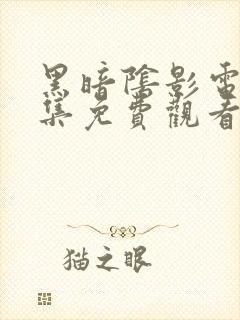 黑暗陰影電
集免費觀看
猫之眼